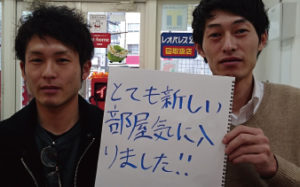 レオパレス
取扱店
とても新しい
部屋気に入
りました!!